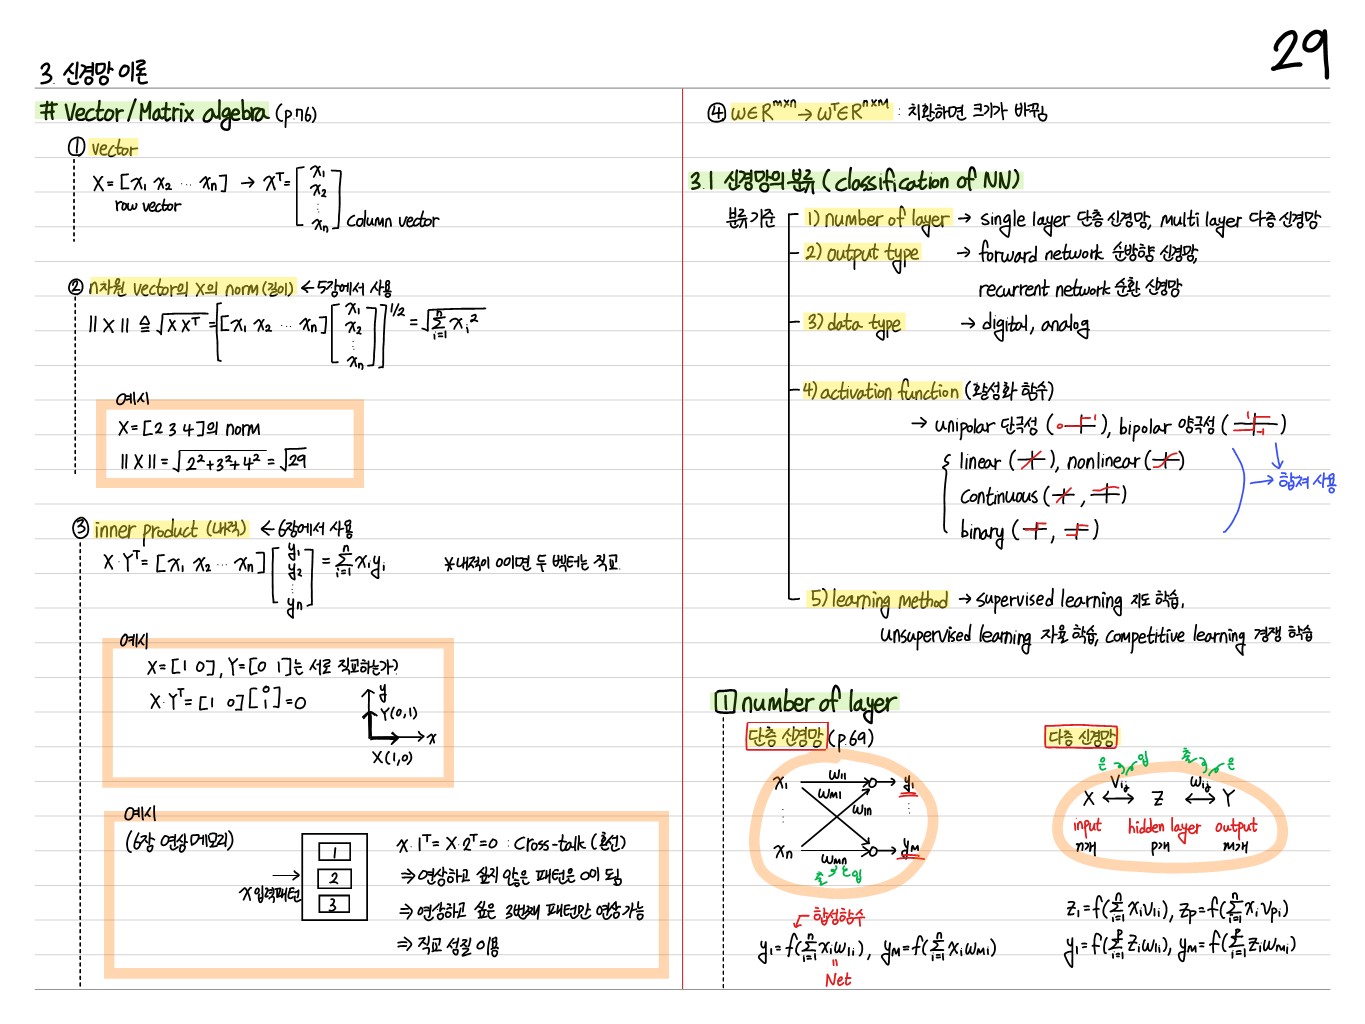 29
3. 신경망 이론
# Vector/Matrix algebra (p.76)
① vector
X = [x₁ x₂ ··· xₙ] → Xᵀ = [x₁ x₂ ⋮ xₙ]
row vector
column vector
② n차원 vector의 X의 norm(길이) ← 5장에서 사용
||X|| ≙ √(XXᵀ) = [[x₁ x₂ ··· xₙ][x₁ x₂ ⋮ xₙ]]^1/2 = √(Σᵢ₌₁ⁿ xᵢ²)
예시
X = [2 3 4]의 norm
||X|| = √(2²+3²+4²) = √29
③ inner product (내적) ← 6장에서 사용
X·Yᵀ = [x₁ x₂ ··· xₙ][y₁ y₂ ⋮ yₙ] = Σᵢ₌₁ⁿ xᵢyᵢ
*내적이 0이면 두 벡터는 직교.
예시
X=[1 0], Y=[0 1]는 서로 직교하는가?
X·Yᵀ = [1 0][0 1] = 0
y
Y(0,1)
x
X(1,0)
예시
(6장 연상 메모리)
X 입력패턴
1
2
3
X·1ᵀ = X·2ᵀ = 0 : Cross-talk (혼선)
⇒ 연상하고 싶지 않은 패턴은 0이 됨
⇒ 연상하고 싶은 3번째 패턴만 연상 가능
⇒ 직교 성질 이용
④ W∈Rᵐˣⁿ → Wᵀ∈Rⁿˣᵐ : 치환하면 크기가 바뀜
3.1 신경망의 분류 (classification of NN)
분류 기준
1) number of layer → single layer 단층 신경망, multi layer 다층 신경망
2) output type → forward network 순방향 신경망,
recurrent network 순환 신경망
3) data type → digital, analog
4) activation function (활성화 함수)
→ unipolar 단극성 (0 1), bipolar 양극성 (1 -1)
linear ( ), nonlinear ( )
continuous ( , )
binary ( , )
→ 합쳐 사용
5) learning method → supervised learning 지도 학습,
unsupervised learning 자율 학습, competitive learning 경쟁 학습
1 number of layer
단층 신경망 (p.69)
x₁ w₁₁ y₁
wₘ₁ w₁ₙ
xₙ wₘₙ yₘ
출 입
합성함수
y₁ = f(Σᵢ₌₁ⁿ xᵢw₁ᵢ), yₘ = f(Σᵢ₌₁ⁿ xᵢwₘᵢ)
Net
다층 신경망
은 입 출 은
Vᵢⱼ Wᵢⱼ
X ↔ Z ↔ Y
input hidden layer output
n개 p개 m개
z₁ = f(Σᵢ₌₁ⁿ xᵢv₁ᵢ), zₚ = f(Σᵢ₌₁ⁿ xᵢvₚᵢ)
y₁ = f(Σᵢ₌₁ᵖ zᵢw₁ᵢ), yₘ = f(Σᵢ₌₁ᵖ zᵢwₘᵢ)